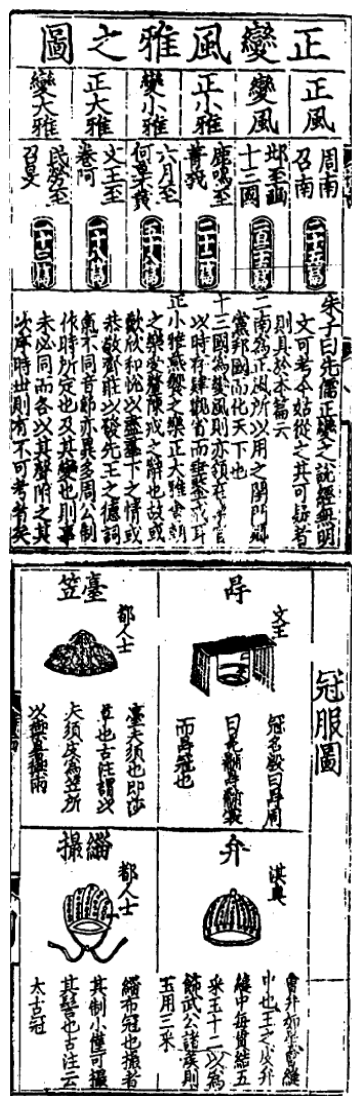 正變風雅之圖
正風
周南
召南
二十五篇
變風
邶至豳
十三國
一百三十五篇
正小雅
鹿鳴至
菁莪
二十二篇
變小雅
六月至
何草黃
五十八篇
正大雅
文王至
卷阿
十八篇
變大雅
民勞至
召旻
十三篇
朱子曰先儒正變之說經無明
文可考今姑從之其可疑者
則具於本篇云
二南為正風所以用之閨門鄉
黨邦國而化天下也
十三國為變風則亦領在樂官
以時存肄觀省而垂鑒戒耳
正小雅燕饗之樂正大雅會朝
之樂受釐陳戒之辭也故或
歡欣和說以盡群下之情或
恭敬齊莊以發先王之德詞
氣不同音節亦異多周公制
作時所定也及其變也則事
未必同而各以其聲附之其
次序時世則有不可考者矣
冠服圖
冔
文王
冠名殷曰冔周
曰冕黼冔黼裳
而冔冠也
臺笠
都人士
臺夫須也即莎
草也古注謂以
夫須皮為笠所
以禦暑禦雨
弁
淇奧
會弁如星會縫
中也王之皮弁
縫中每貫結五
采玉十二以為
飾武公諸侯則
玉用三采
緇撮
都人士
緇布冠也撮者
其制小僅可撮
其髻也古注云
太古冠